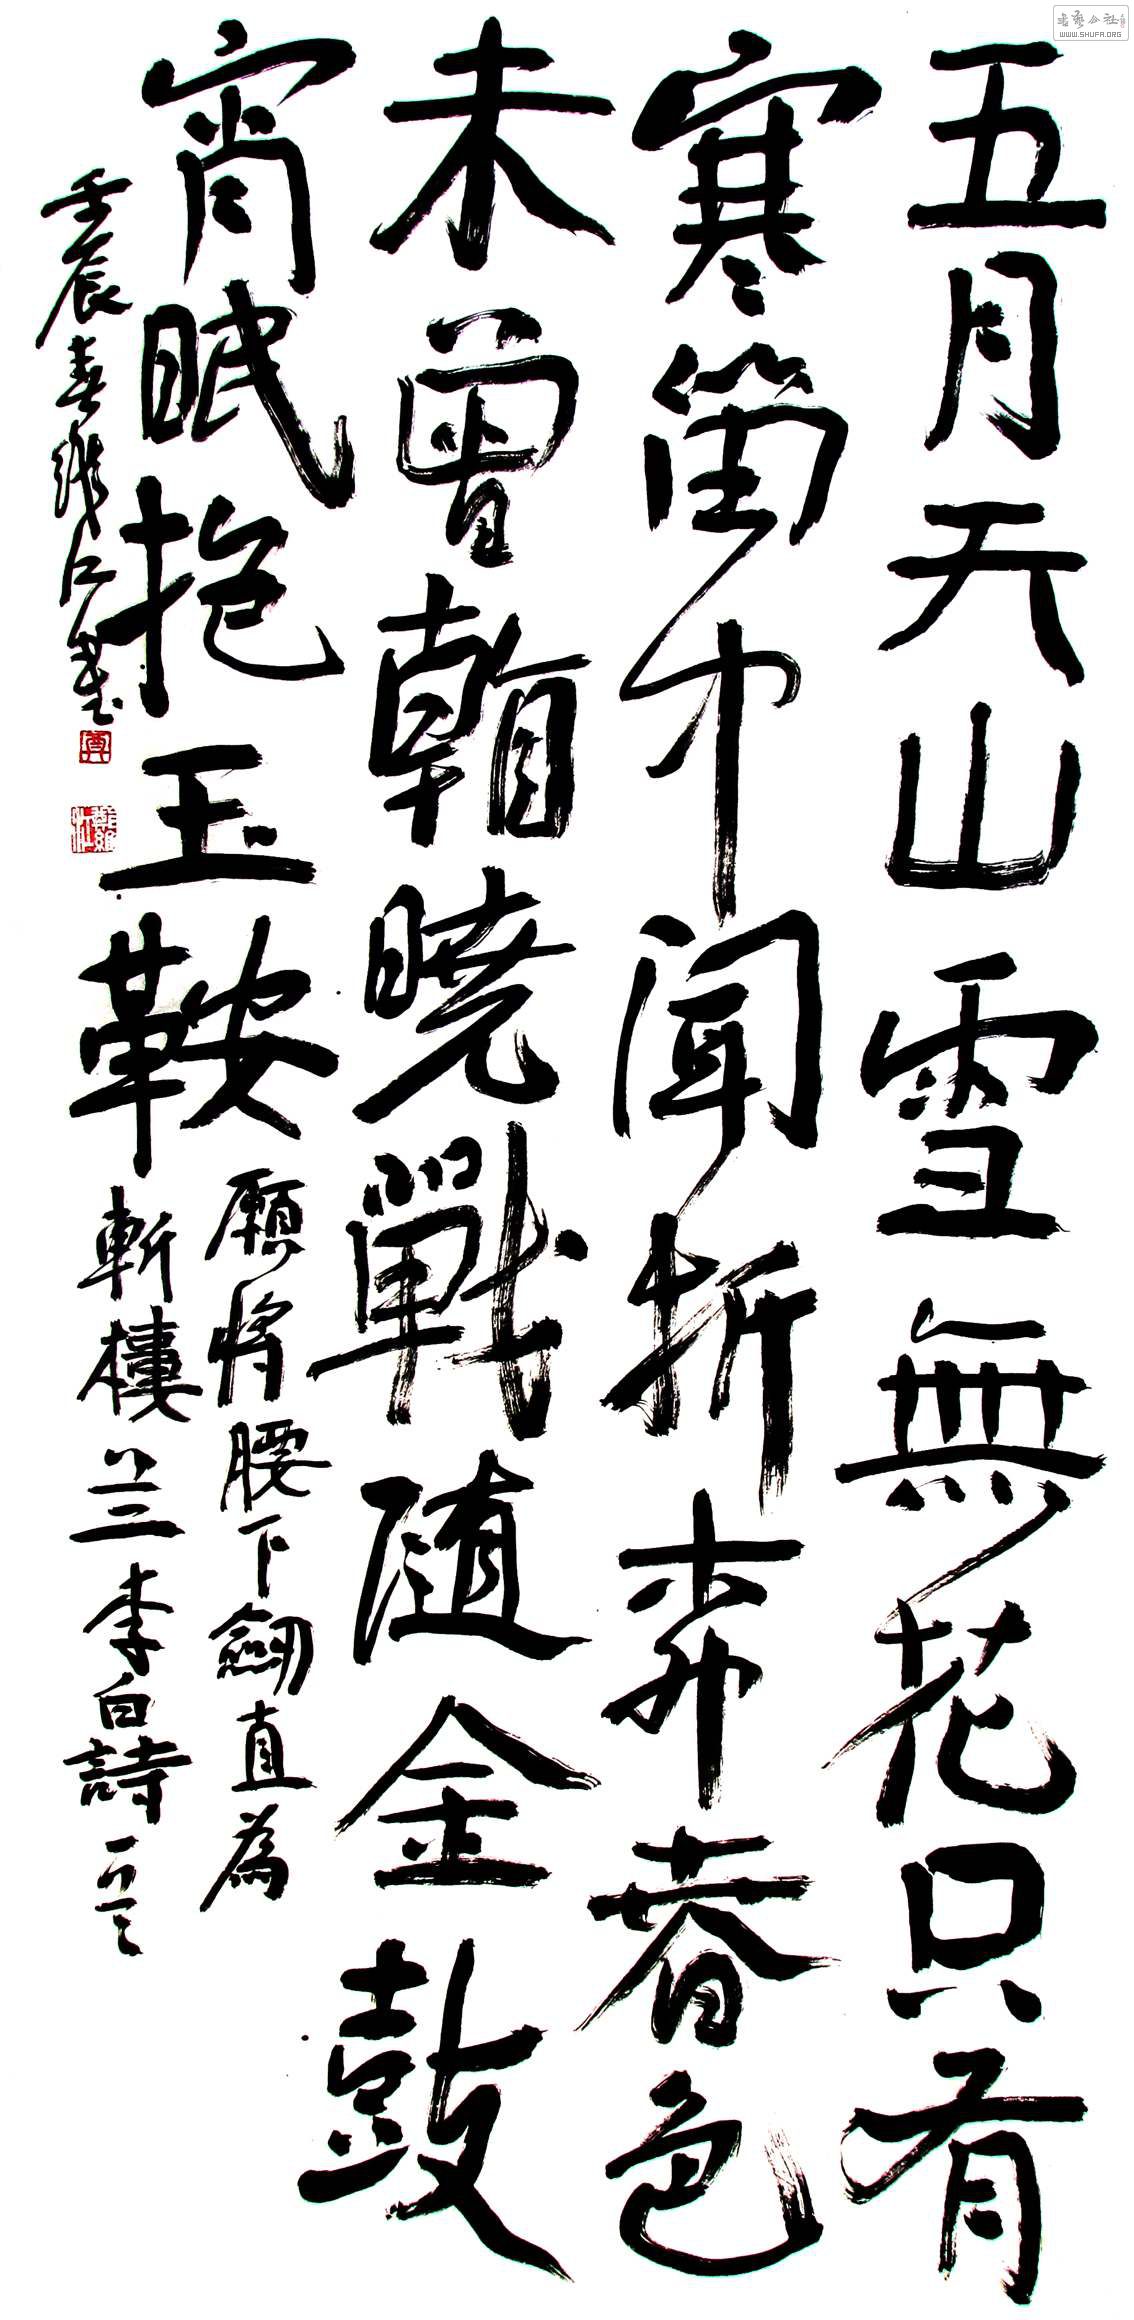 五月天山雪無花只有
寒笛中聞折柳春色
未曾看曉戰隨金鼓
宵眠抱玉鞍
願將腰下劒直為
斬樓蘭李白詩一首
壬辰春 書
書藝公社
WWW.SHUFA.ORG